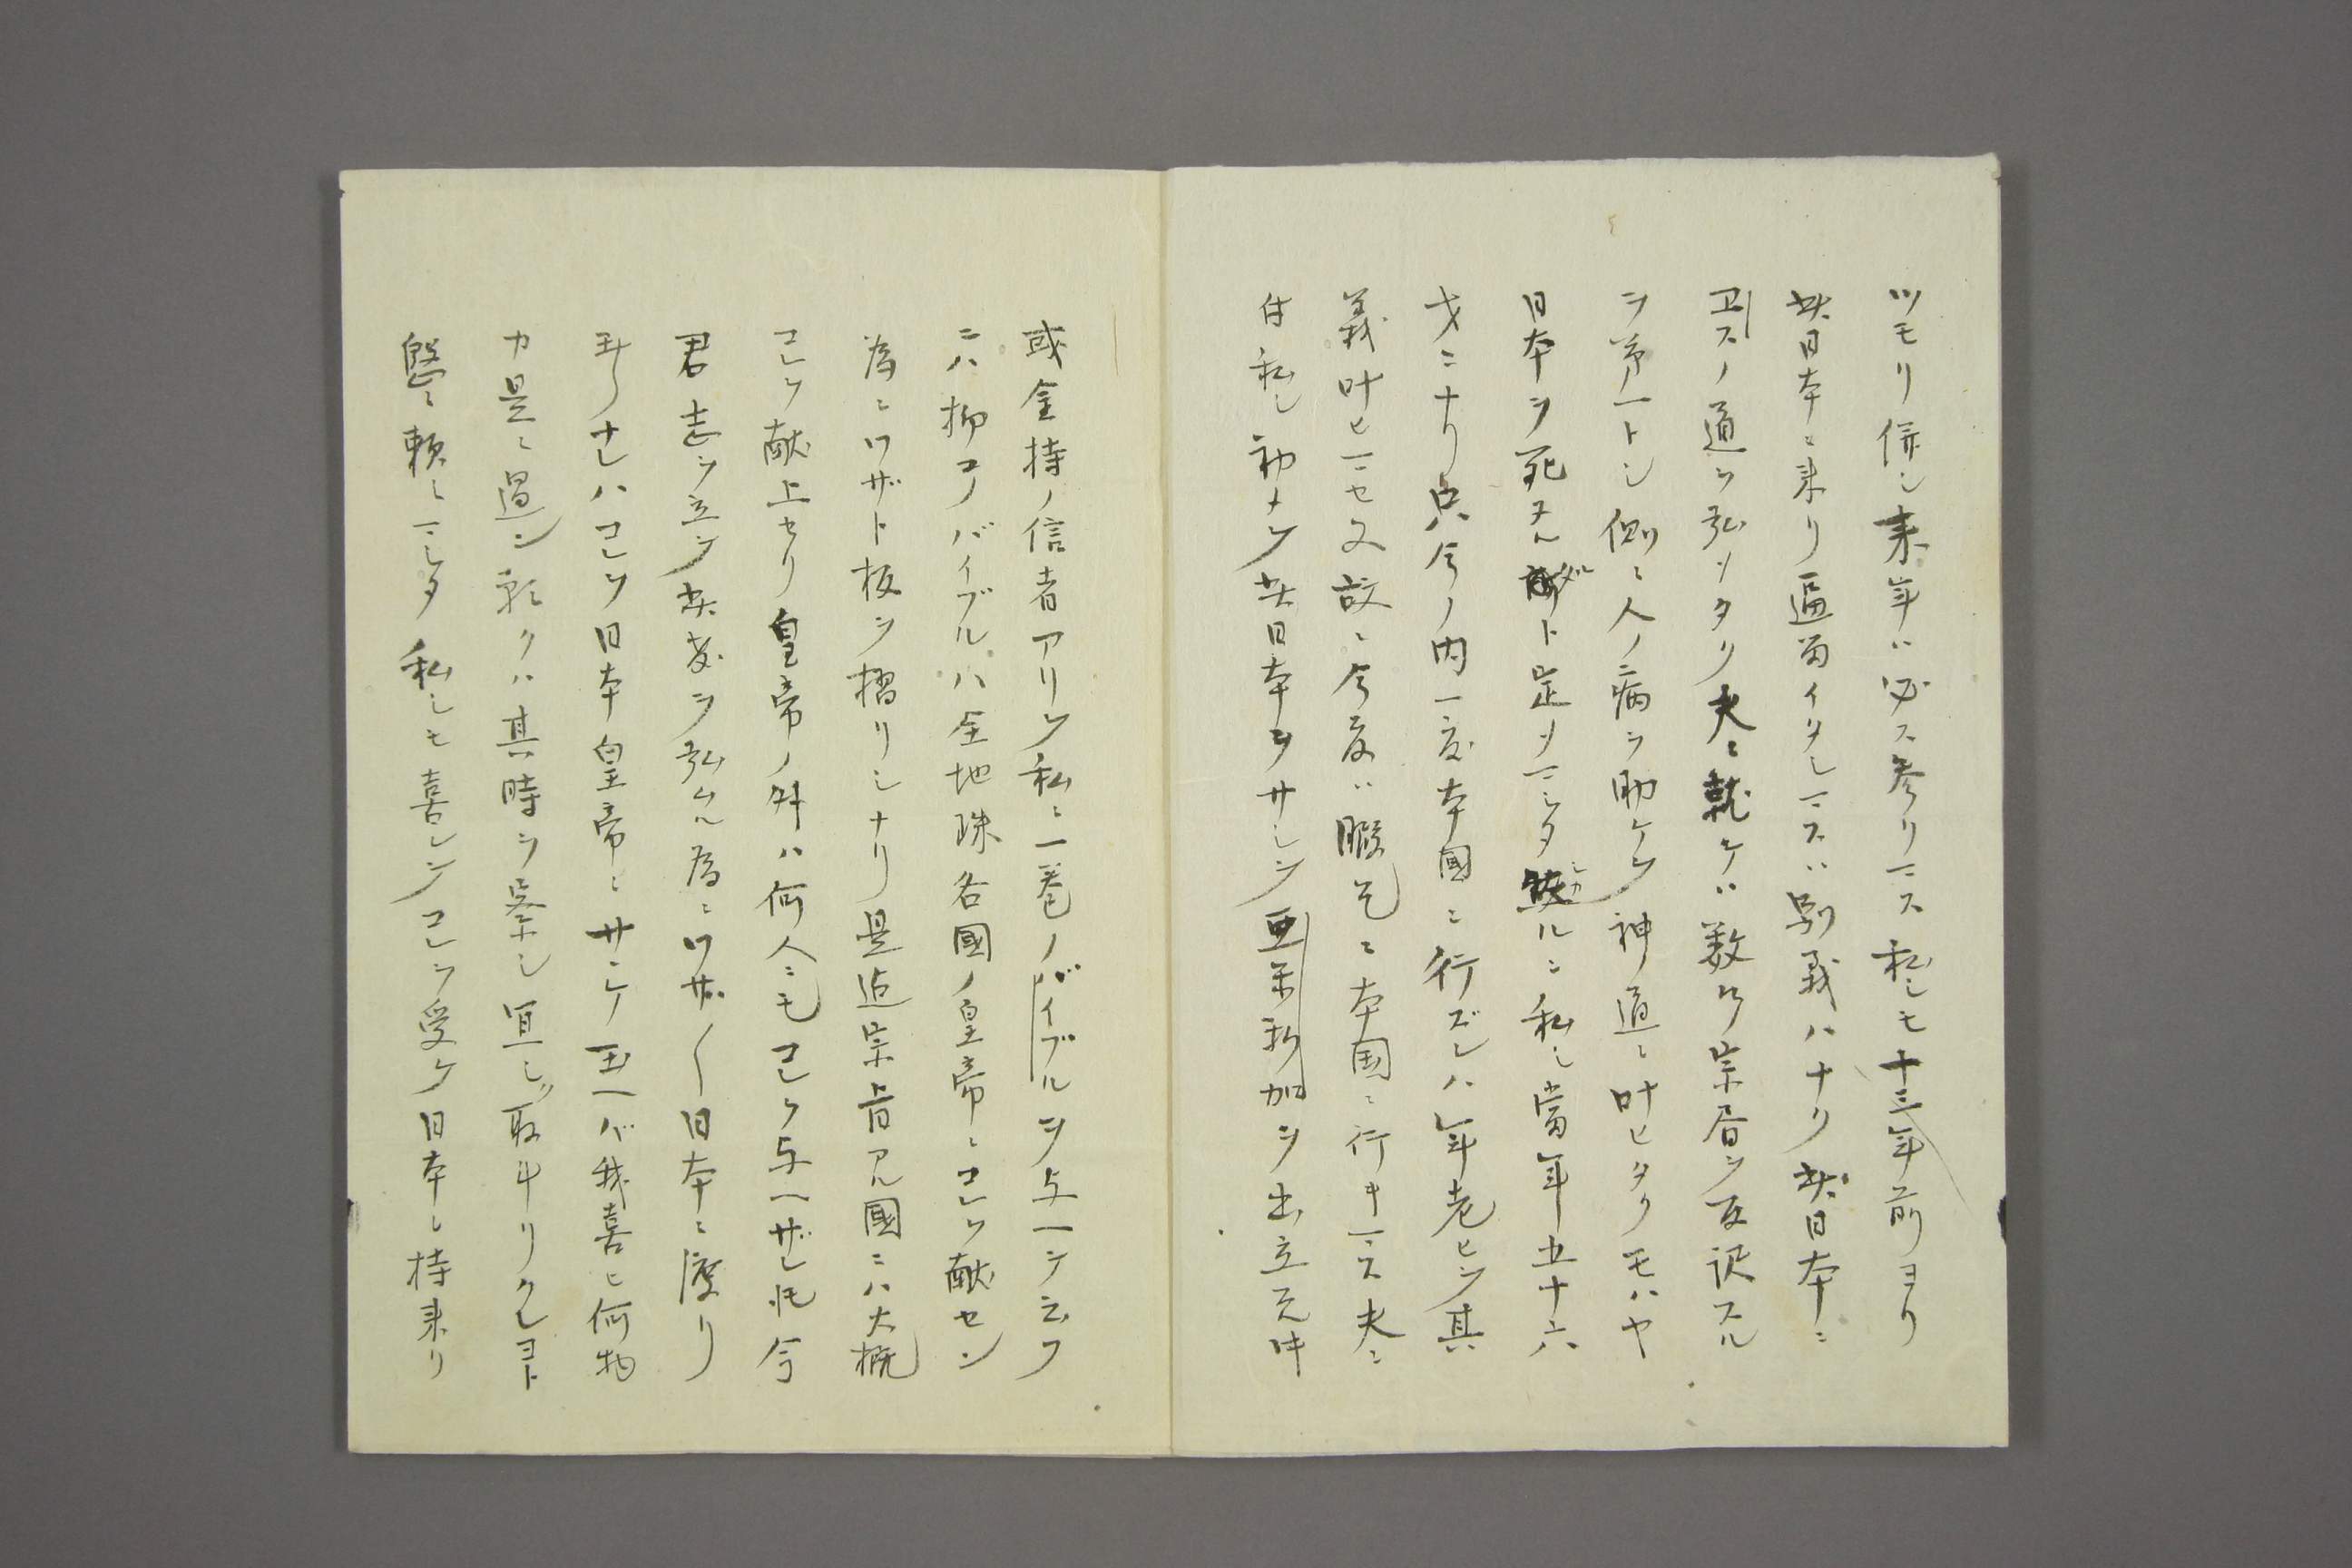 ツモリ併シ来年ハ必ス参リマス私シモ十三年前ヨリ
此日本ニ来リ逗留イタシマスハ別義ハナク此日本ニ
ヱスノ道ヲ弘メタク夫ニ就ケハ数々宗旨ヲ反訳スル
ヲ第一トシ側ニ人ノ病ヲ助ケテ神ノ道ニ叶ヒタクモハヤ
日本ヲ死スル所ト定メマシタ然ルニ私シ當年五十六
才ニナリ只今ノ内一度本國ニ行ズレハ年老ヒテ其
義叶ヒマセヌ故ニ今度ハ暇乞ニ本国ニ行キマス夫ニ
付私シ初メテ此日本ヲサシテ亜米利加ヲ出立ノ砌
或金持ノ信者アリテ私ニ一巻ノバイブルヲ与ヘテ云フ
ニハ抑コノバイブルハ全地球各國ノ皇帝ニコレヲ献セン
為ニワザト板ヲ摺リシナリ是迄宗旨アル國ニハ大概
コレヲ献上セリ皇帝ノ外ハ何人ニモコレヲ与ヘザレ𪜈今
君志ヲ立テ此教ヲ弘ムル為ニワザ〱日本ニ渡リ
玉フナレハコレヲ日本皇帝ニサヽケ玉ヘバ我喜ヒ何物
カ是ニ過ン願クハ其時ヲ察シ宜シク取斗リクレヨト
慇ニ頼ミマシタ私シモ喜ンテコレヲ受ケ日本ニ持来リ